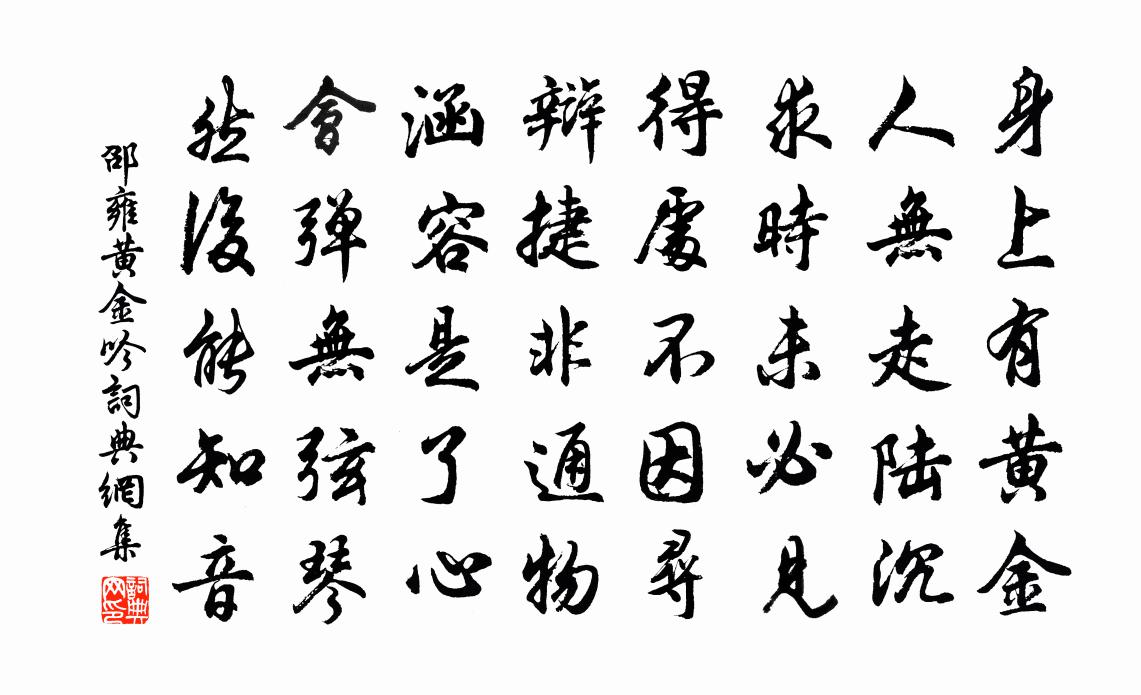 身上有黄金
人無走陆沉
求時未必見
得處不因尋
辯捷非通物
涵容是了心
會弹無弦琴
然後能知音
邵雍黄金吟詞典網集
詞典网印